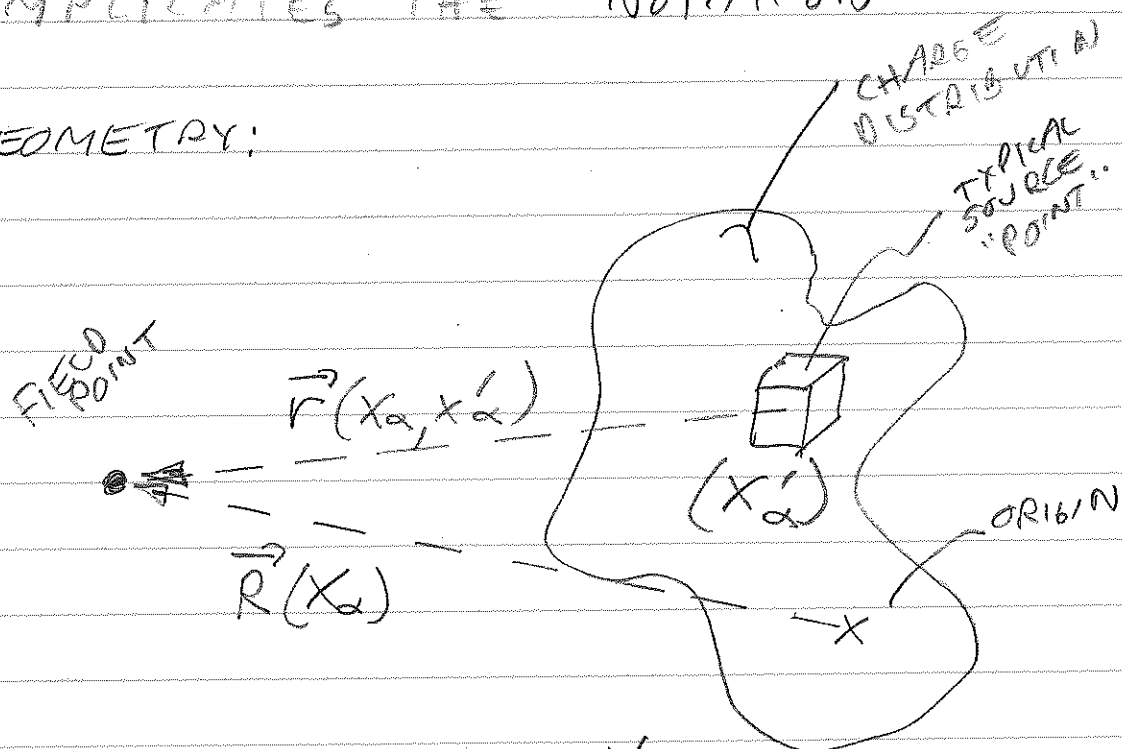 THE NOTATION
EOMETRY:
CHARGE
DISTRIBUTION
TYPICAL
SOURCE
"POINT"
FIELD
POINT
r⃗(xα, x′α)
(x′α)
ORIGIN
R⃗(xα)
x